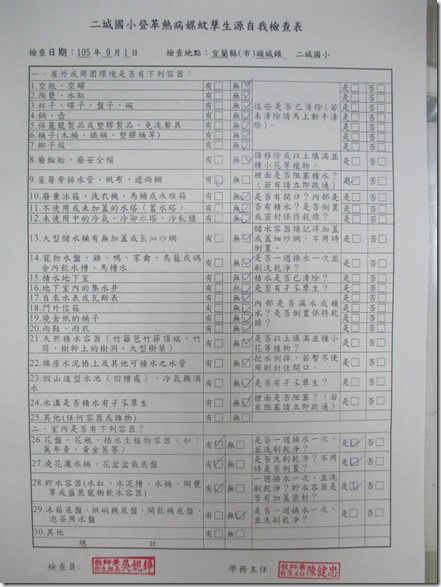 二城國小登革熱病媒蚊孳生源自我檢查表
檢查日期：105年9月1日 檢查地點：宜蘭縣(市)頭城鎮 二城國小
一、屋外或周圍環境是否有下列容器：
1.空瓶、空罐 有□ 無□ 是□ 否□
2.陶甕、水缸 有□ 無□ 是□ 否□
3.杯子、碟子、盤子、碗 有□ 無□ 這些是否已清除(若 是□ 否□
4.鍋、壺 有□ 無□ 未清除請馬上動手清 是□ 否□
5.保麗龍製品或塑膠製品、免洗餐具 有□ 無□ 除)。 是□ 否□
6.桶子(木桶、鐵桶、塑膠桶等) 有□ 無□ 是□ 否□
7.椰子殼 有□ 無□ 是□ 否□
8.廢輪胎、廢安全帽 有□ 無□ 請移除或以土填滿並種小花等植物。 是□ 否□
9.屋簷旁排水管、帆布、遮雨棚 有□ 無□ 裡面是否阻塞積水？(若有請立即疏通) 是□ 否□
10.廢棄冰箱、洗衣機、馬桶或水族箱 有□ 無□ 是否有開口？內部是 是□ 否□
11.不使用或未加蓋的水塔(蓄水塔) 有□ 無□ 否有積水？是否倒置 是□ 否□
12.未使用中的冷氣、冷卻水塔、冷飲櫃 有□ 無□ 或密封保持乾燥？ 是□ 否□
13.大型儲水桶有無加蓋或蓋細紗網 有□ 無□ 儲水容器請記得加蓋或蓋細紗網，不用時倒置。 是□ 否□
14.寵物水盤、雞、鴨、家禽、鳥籠或鴿舍內飲水槽、馬槽水 有□ 無□ 是否一週換水一次並刷洗乾淨？ 是□ 否□
15.積水地下室 有□ 無□ 積水是否已清除？ 是□ 否□
16.地下室內的集水井 有□ 無□ 是否有孑孓孳生？ 是□ 否□
17.自來水表或瓦斯表 有□ 無□ 內部是否漏水或積 是□ 否□
18.門外信箱 有□ 無□ 水？是否倒置保持乾 是□ 否□
19.燒金紙的桶子 有□ 無□ 燥？ 是□ 否□
20.雨鞋、雨衣 有□ 無□ 是□ 否□
21.天然積水容器(竹籬笆竹節頂端、竹筒、樹幹上的樹洞、大型樹葉) 有□ 無□ 是否以土填滿並種小花等植物？ 是□ 否□
22.積座水泥樁上及其他可積水之水管 有□ 無□ 把水倒掉，若暫不使用則封住開口。 是□ 否□
23.假山造型水池(凹槽處)、冷氣機滴水 有□ 無□ 是否有孑孓孳生？ 是□ 否□
24.水溝是否積水有孑孓孳生 有□ 無□ 裡面是否阻塞？(若有阻塞請疏通) 是□ 否□
25.其他(任何容器或雜物) 有□ 無□ 是□ 否□
二、室內是否有下列容器？
26.花盆、花瓶、插水生植物容器(如：萬年青、黃金葛等) 有□ 無□ 是否一週換水一次，並洗刷乾淨？ 是□ 否□
27.澆花灑水桶、花盆盆栽底盤 有□ 無□ 是否洗刷乾淨？不用時是否倒置？ 是□ 否□
28.貯水容器(水缸、水泥槽、水桶、陶甕等或盛裝寵物飲水容器) 有□ 無□ 一週換水一次，並洗刷乾淨？貯水容器是否有加蓋密封？ 是□ 否□
29.冰箱底盤、烘碗機底盤、開飲機底盤、泡茶用水盤 有□ 無□ 是否一週換水一次，並洗刷乾淨？ 是□ 否□
30.其他 有□ 無□ 是□ 否□
總 計
檢查員： 學務主任：
教師兼 陳健忠